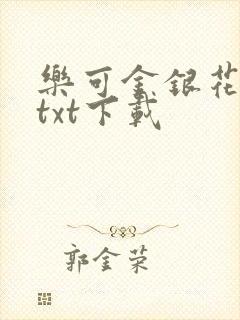 樂可金銀花
txt下載
郭金榮